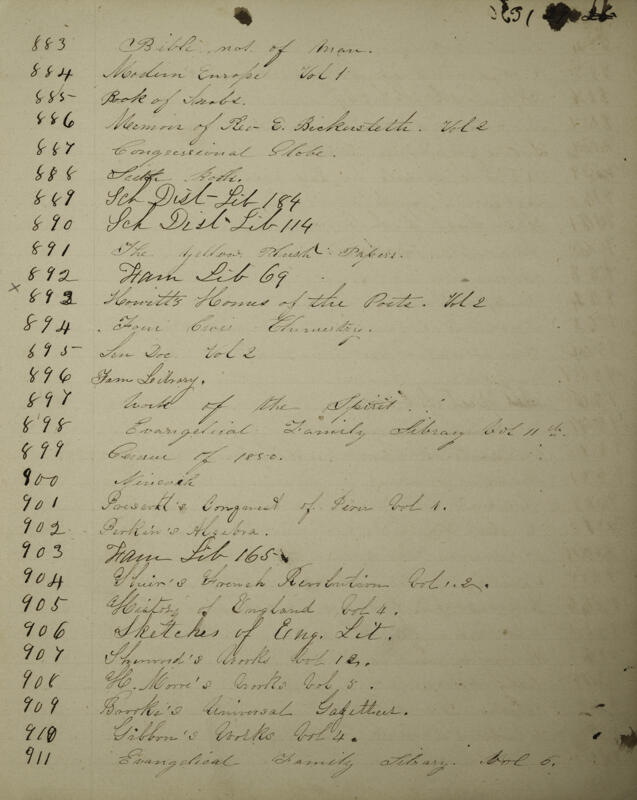 883 Bible not of Man.
884 Modern Europe Vol 1
885 Book of Snobs.
886 Memoir of Rev E. Bickersteth. Vol 2
887 Congressional Globe.
888
889 Sch Dist Lib 184
890 Sch Dist Lib 114
891 The Yellow Plush Papers.
892 Fam Lib 69
x 893 Howitt's Homes of the Poets. Vol 2
894 Chemistry.
895 Sen Doc Vol 2
896 Fam Library.
897 Work of the Spirit.
898 Evangelical Family Library Vol 11th.
899 Census of 1850.
900
901 Prescott's Conquest of Peru Vol 1.
902 Perkin's Algebra.
903 Fam Lib 165
904 French Revolution Vol 1.2.
905 History of England Vol 4.
906 Sketches of Eng. Lit.
907 Sherwood's Works Vol 12.
908 H. More's Works Vol, 5.
909 Brooke's Universal Gazetteer.
910 Gibbon's Works Vol 4.
911 Evangelical Family Library. Vol 6.